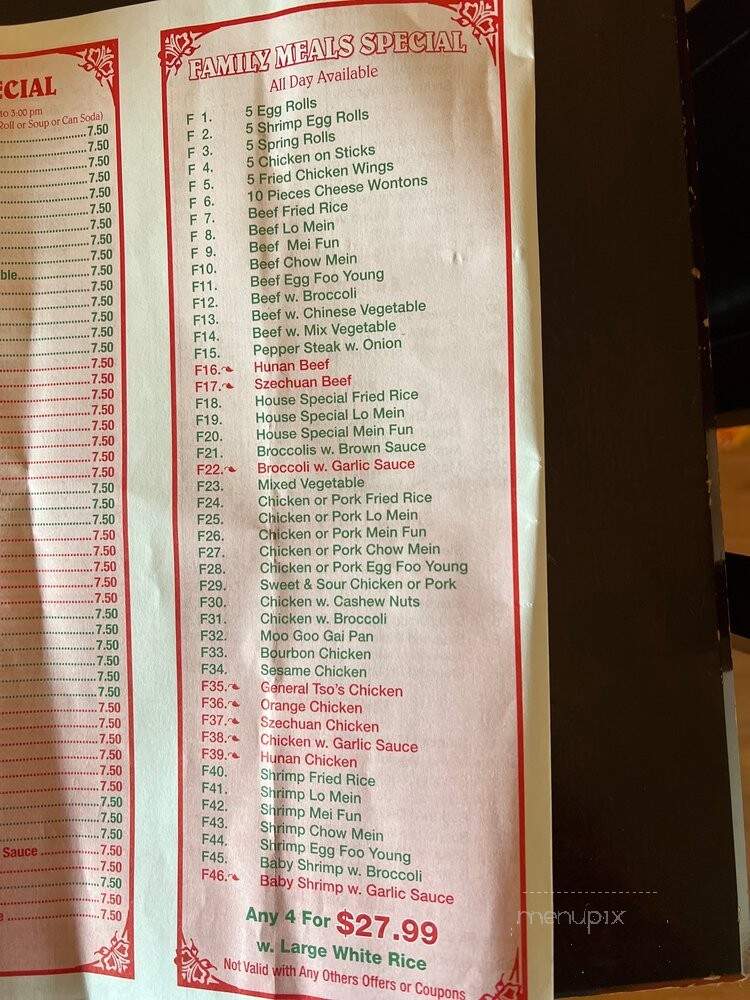 ECIAL
to 3:00 pm
Roll or Soup or Can Soda)
7.50
7.50
7.50
7.50
7.50
7.50
7.50
7.50
7.50
ble 7.50
7.50
7.50
7.50
7.50
7.50
7.50
7.50
7.50
7.50
7.50
7.50
7.50
7.50
7.50
7.50
7.50
7.50
7.50
7.50
7.50
7.50
7.50
7.50
7.50
7.50
7.50
7.50
7.50
7.50
7.50
7.50
7.50
7.50
7.50
7.50
7.50
Sauce 7.50
7.50
7.50
7.50
e 7.50
FAMILY MEALS SPECIAL
All Day Available
F 1. 5 Egg Rolls
F 2. 5 Shrimp Egg Rolls
F 3. 5 Spring Rolls
F 4. 5 Chicken on Sticks
F 5. 5 Fried Chicken Wings
F 6. 10 Pieces Cheese Wontons
F 7. Beef Fried Rice
F 8. Beef Lo Mein
F 9. Beef Mei Fun
F10. Beef Chow Mein
F11. Beef Egg Foo Young
F12. Beef w. Broccoli
F13. Beef w. Chinese Vegetable
F14. Beef w. Mix Vegetable
F15. Pepper Steak w. Onion
F16. Hunan Beef
F17. Szechuan Beef
F18. House Special Fried Rice
F19. House Special Lo Mein
F20. House Special Mein Fun
F21. Broccolis w. Brown Sauce
F22. Broccoli w. Garlic Sauce
F23. Mixed Vegetable
F24. Chicken or Pork Fried Rice
F25. Chicken or Pork Lo Mein
F26. Chicken or Pork Mein Fun
F27. Chicken or Pork Chow Mein
F28. Chicken or Pork Egg Foo Young
F29. Sweet & Sour Chicken or Pork
F30. Chicken w. Cashew Nuts
F31. Chicken w. Broccoli
F32. Moo Goo Gai Pan
F33. Bourbon Chicken
F34. Sesame Chicken
F35. General Tso's Chicken
F36. Orange Chicken
F37. Szechuan Chicken
F38. Chicken w. Garlic Sauce
F39. Hunan Chicken
F40. Shrimp Fried Rice
F41. Shrimp Lo Mein
F42. Shrimp Mei Fun
F43. Shrimp Chow Mein
F44. Shrimp Egg Foo Young
F45. Baby Shrimp w. Broccoli
F46. Baby Shrimp w. Garlic Sauce
Any 4 For $27.99
w. Large White Rice
Not Valid with Any Others Offers or Coupons
menupix